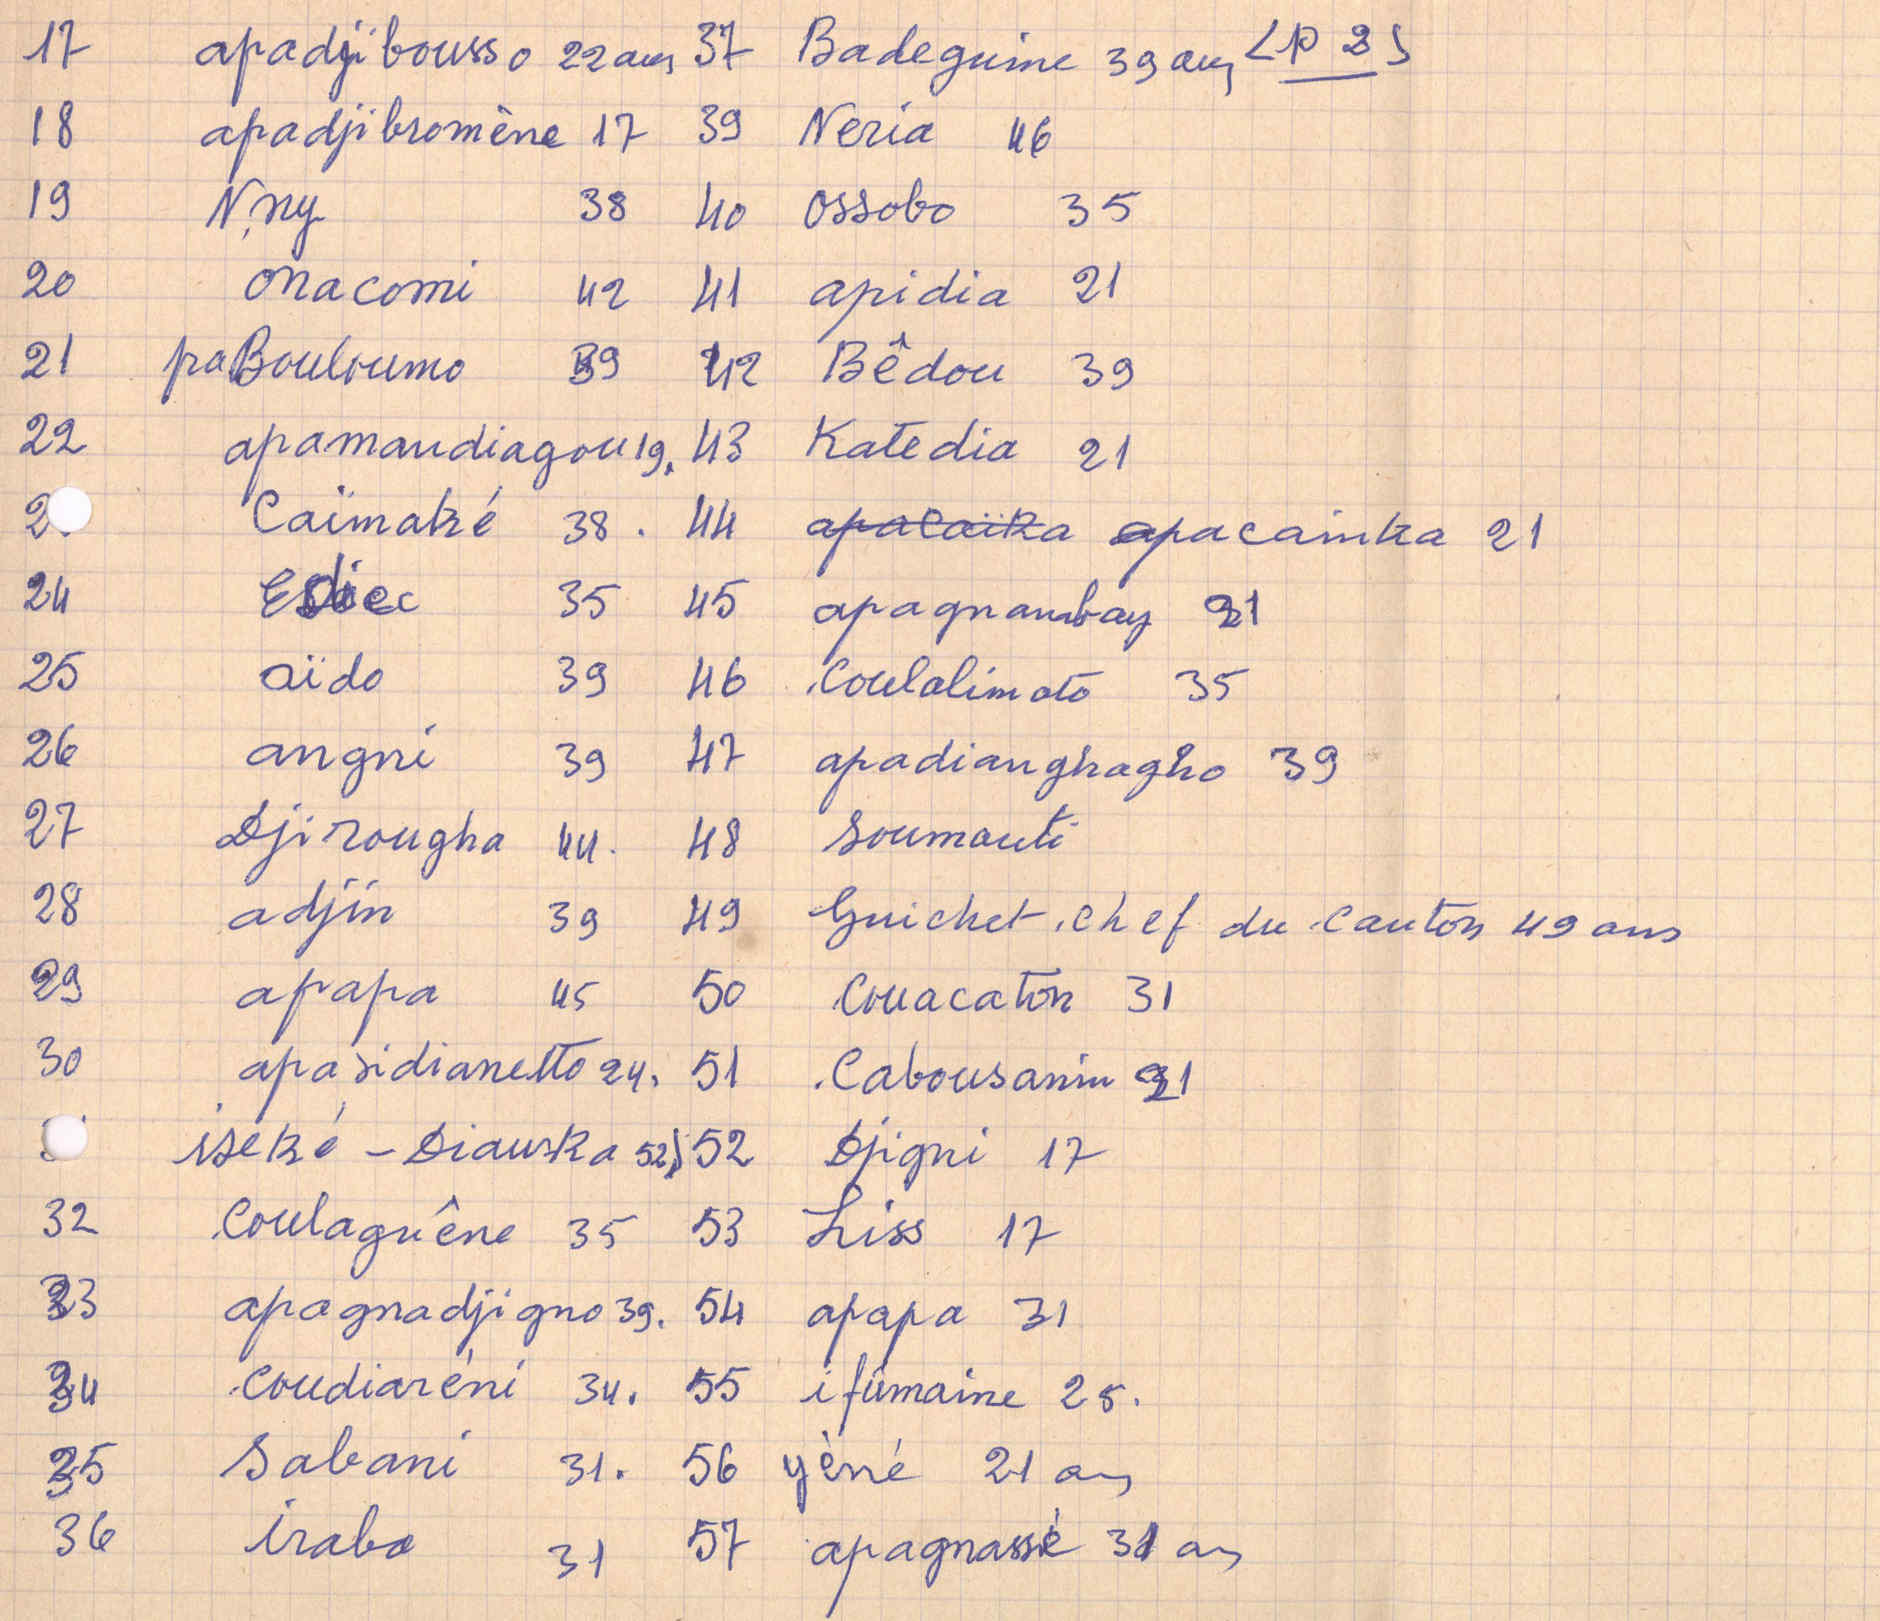 17 apadjibousso 22 ans 37 Badeguine 39 ans <p 2>
18 apadjibromène 17 39 Neria 46
19 N'ny 38 40 ossobo 35
20 onacomi 42 41 apidia 21
21 paBouloumo 39 42 Bêdou 39
22 apamandiagou 19. 43 Katedia 21
2 Caïmaké 38. 44 apacaïka apacainka 21
24 35 45 apagnambay 21
25 aïdo 39 46 Coulalimoto 35
26 angni 39 47 apadianghagho 39
27 Djirougha 44. 48 Soumauti
28 adjin 39 49 Guichet chef du canton 49 ans
29 apapa 45 50 Couacaton 31
30 apasidianetto 24. 51 Cabousanin 21
iseké - Dianka 52 52 Djigni 17
32 Coulaguêne 35 53 Liss 17
33 apagnadjigno 39. 54 apapa 31
34 coudiaréni 34. 55 ifumaine 25.
35 Sabani 31. 56 yèné 21 ans
36 irabo 31 57 apagnassé 31 ans